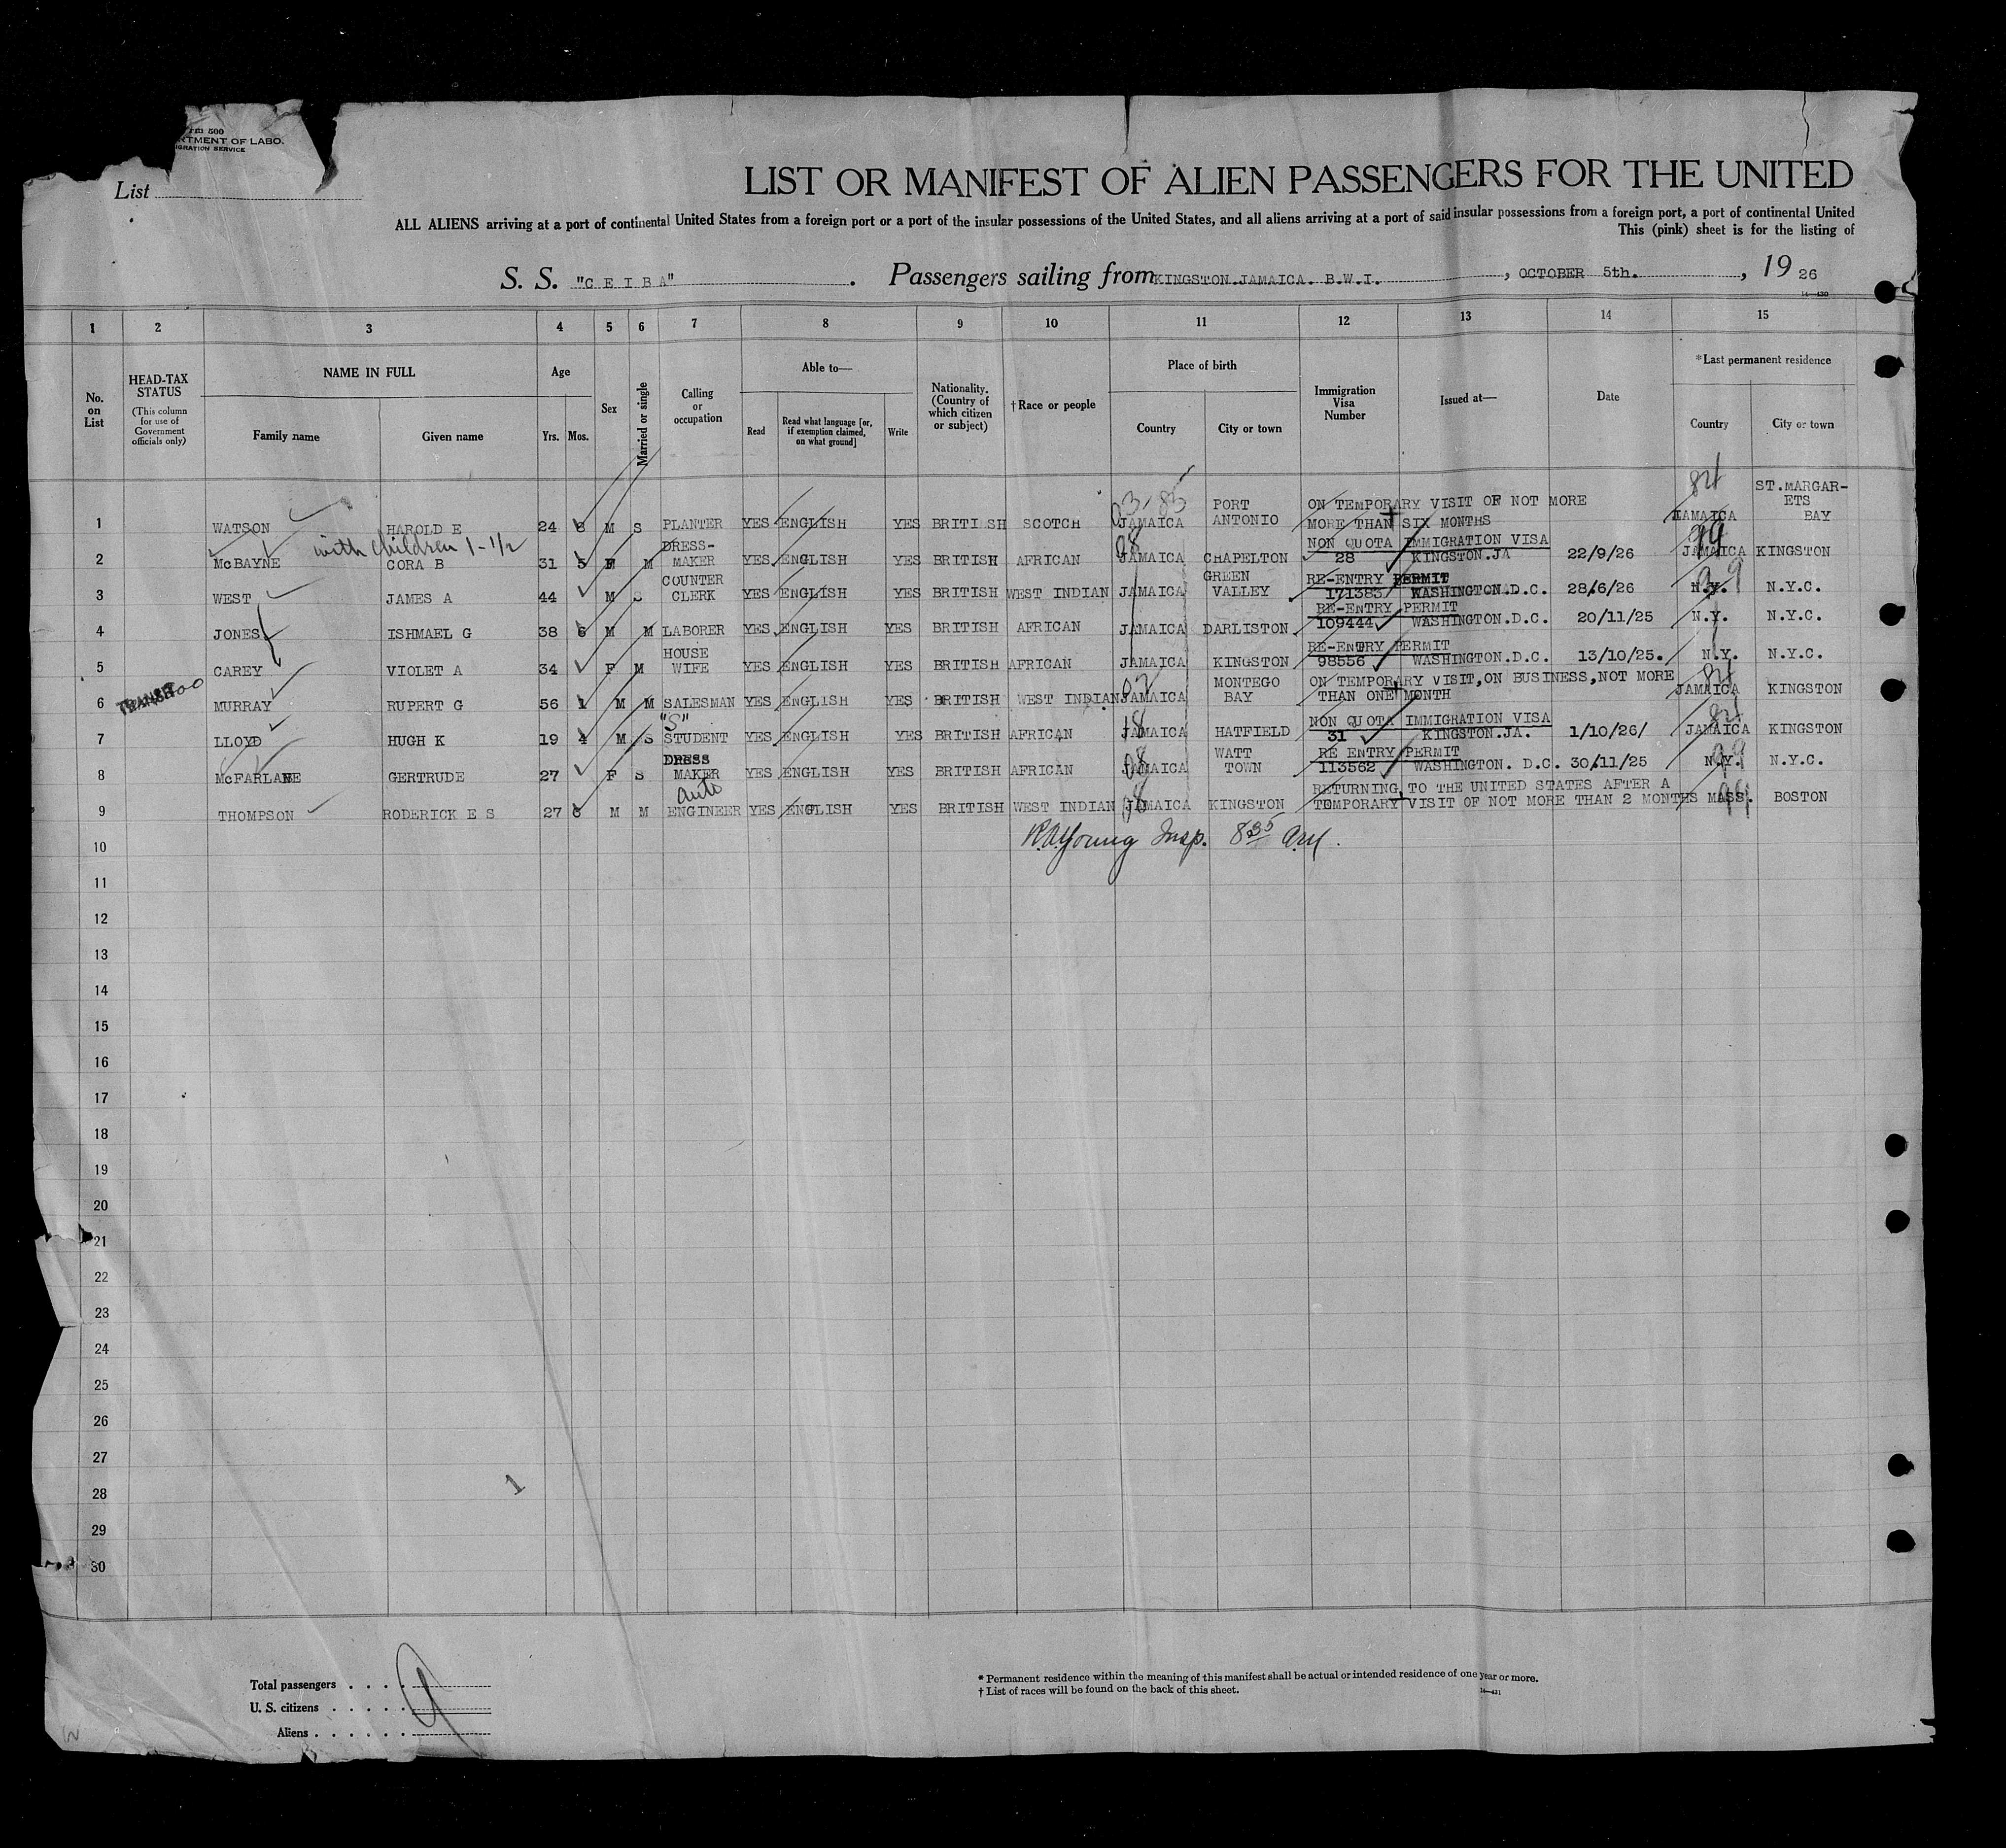 500
RTMENT OF LABO.
GRATION SERVICE
List
LIST OR MANIFEST OF ALIEN PASSENGERS FOR THE UNITED
ALL ALIENS arriving at a port of continental United States from a foreign port or a port of the insular possessions of the United States, and all aliens arriving at a port of said insular possessions from a foreign port, a port of continental United
This (pink) sheet is for the listing of
S. S. "CEIBA". Passengers sailing from KINGSTON.JAMAICA. B.W.I., OCTOBER 5th., 19 26
1 2 3 4 5 6 7 8 9 10 11 12 13 14 15
No. on List
HEAD-TAX STATUS (This column for use of Government officials only)
NAME IN FULL
Family name Given name
Age
Yrs. Mos.
Sex
Married or single
Calling or occupation
Able to—
Read Read what language [or, if exemption claimed, on what ground] Write
Nationality. (Country of which citizen or subject)
†Race or people
Place of birth
Country City or town
Immigration Visa Number
Issued at—
Date
*Last permanent residence
Country City or town
1 WATSON HAROLD E 24 8 M S PLANTER YES ENGLISH YES BRITISH SCOTCH JAMAICA PORT ANTONIO ON TEMPORARY VISIT OF NOT MORE MORE THAN SIX MONTHS JAMAICA ST.MARGAR-ETS BAY
with children 1-1/2
2 McBAYNE CORA B 31 5 F M DRESS-MAKER YES ENGLISH YES BRITISH AFRICAN JAMAICA CHAPELTON NON QUOTA IMMIGRATION VISA 28 KINGSTON.JA 22/9/26 JAMAICA KINGSTON
3 WEST JAMES A 44 M S COUNTER CLERK YES ENGLISH YES BRITISH WEST INDIAN JAMAICA GREEN VALLEY RE-ENTRY PERMIT 171383 WASHINGTON.D.C. 28/6/26 N.Y. N.Y.C.
4 JONES ISHMAEL G 38 6 M M LABORER YES ENGLISH YES BRITISH AFRICAN JAMAICA DARLISTON RE-ENTRY PERMIT 109444 WASHINGTON.D.C. 20/11/25 N.Y. N.Y.C.
5 CAREY VIOLET A 34 F M HOUSE WIFE YES ENGLISH YES BRITISH AFRICAN JAMAICA KINGSTON RE-ENTRY PERMIT 98556 WASHINGTON.D.C. 13/10/25. N.Y. N.Y.C.
TRANSIT
6 MURRAY RUPERT G 56 1 M M SALESMAN YES ENGLISH YES BRITISH WEST INDIAN JAMAICA MONTEGO BAY ON TEMPORARY VISIT,ON BUSINESS,NOT MORE THAN ONE MONTH JAMAICA KINGSTON
7 LLOYD HUGH K 19 4 M S "S" STUDENT YES ENGLISH YES BRITISH AFRICAN JAMAICA HATFIELD NON QUOTA IMMIGRATION VISA 31 KINGSTON.JA. 1/10/26/ JAMAICA KINGSTON
8 McFARLANE GERTRUDE 27 F S DRESS MAKER YES ENGLISH YES BRITISH AFRICAN JAMAICA WATT TOWN RE ENTRY PERMIT 113562 WASHINGTON. D.C. 30/11/25 N.Y. N.Y.C.
9 THOMPSON RODERICK E S 27 M M auto ENGINEER YES ENGLISH YES BRITISH WEST INDIAN JAMAICA KINGSTON RETURNING TO THE UNITED STATES AFTER A TEMPORARY VISIT OF NOT MORE THAN 2 MONTHS MASS. BOSTON
10 Young Insp. 8 35 AM.
11
12
13
14
15
16
17
18
19
20
21
22
23
24
25
26
27
28
29
30
Total passengers
U. S. citizens
Aliens
9
* Permanent residence within the meaning of this manifest shall be actual or intended residence of one year or more.
† List of races will be found on the back of this sheet.